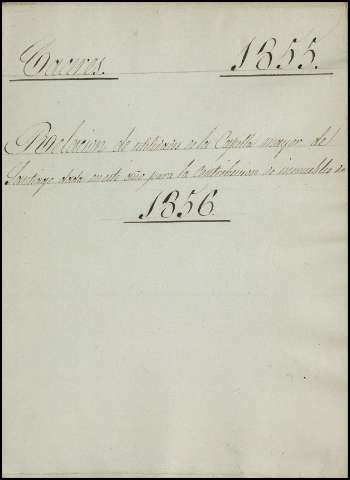 Caceres. 1855.
Relacion de utilidades de la Capilla mayor de
Santiago dada en este año para la contribucion de inmuebles de
1856